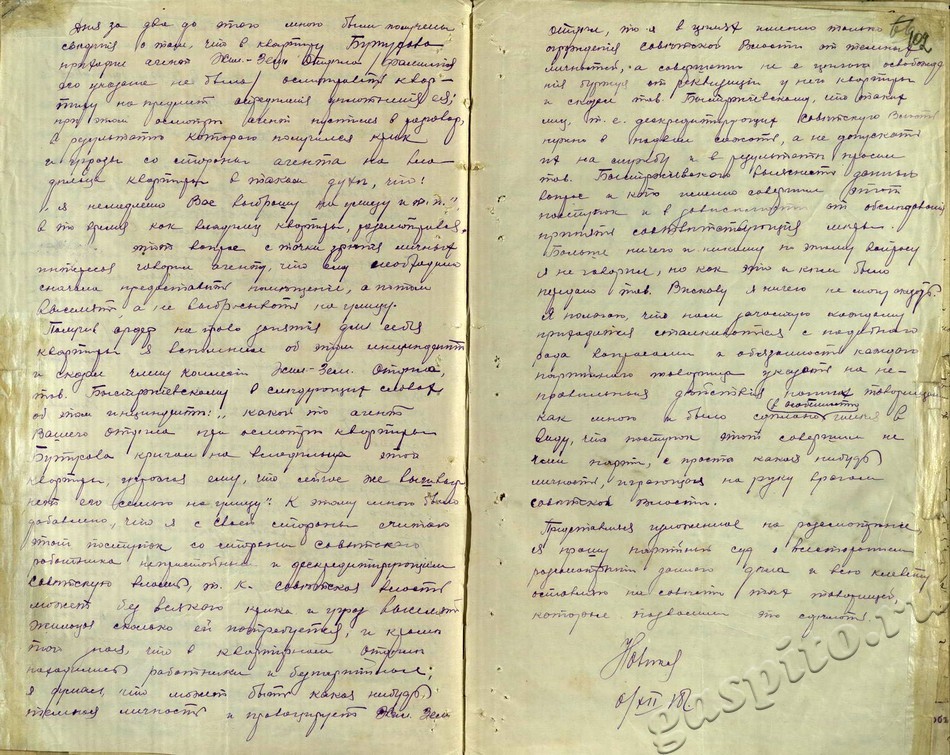 Дня за два до этого мною были получены
сведения о том, что в квартиру Бутусова
приходил агент Жил-Зем Отдела /фамилия
его указана не была/ осматривать квар-
тиру на предмет определения уплотнения ея;
при этом осмотре агент пустился в разговор,
в результате которого получился крик
и угрозы со стороны агента на вла-
дельца квартиры в таком духе, что:
„я немедленно Вас выброшу на улицу и т.п."
в то время как владелец квартиры, рассматривая
этот вопрос с точки зрения личных
интересов говорил агенту, что ему необходимо
сначала предоставить помещение, а потом
выселять, а не выбрасывать на улицу.
Получив ордер на право занятия для себя
квартиры я вспомнил об этом инциденте
и сказал члену коллегии Жил-Зем. Отдела,
тов. Быстржевскому в следующих словах
об этом инциденте: „какой то агент
Вашего отдела при осмотре квартиры
Бутусова кричал на владельца этой
квартиры, угрожая ему, что сейчас же вышвыр-
нет его семью на улицу". К этому мною было
добавлено, что я с своей стороны считаю
этот поступок со стороны советского
работника непристойным и дескредитирующим
советскую власть, т. к. советская власть
может без всякого крика и угроз выселять
жильцов сколько ей потребуется, и кроме
того зная, что в квартирном отделе
находились работники и безпартийные;
я думал, что может быть какая нибудь
темная личность и провоцирует Жил. Зем
отдел, то я в целях именно только
ограждения Советской Власти от темных
личностей, а совершенно не с целью освобожде
ния буржуя от реквизиции у него квартиры
и сказал тов. Быстржевскому, что таких
лиц, т. е. дескредитирующих Советскую Власть
нужно в подвал сажать, а не допускать
их на службу и в результате просил
тов. Быстржевского выяснить данный
вопрос и кто именно совершил этот
поступок и в зависимости от обследования
принять соответствующия меры.
Больше ничего и никому по этому вопросу
я не говорил, но как это и кем было
передано тов. Вискову я ничего не могу сказать.
Я полагаю, что нам зачастую каждому
приходится сталкиваться с подобного
рода вопросами и обязанность каждого
партийного товарища указать на не-
правильныя действия наших товарищей
как мною и было сделано (в особенности имея в
виду, что поступок этот совершил не
член партии, а просто какая нибудь
личность, играющая на руку врагам
советской власти.
Представляя изложенное на рассмотрение,
я прошу партийный суд о всестороннем
рассмотрении данного дела и всю клевету
оставляю на совести тех товарищей,
которые позволили это сделать.
6/XII 18г.
102
gaspito.ru